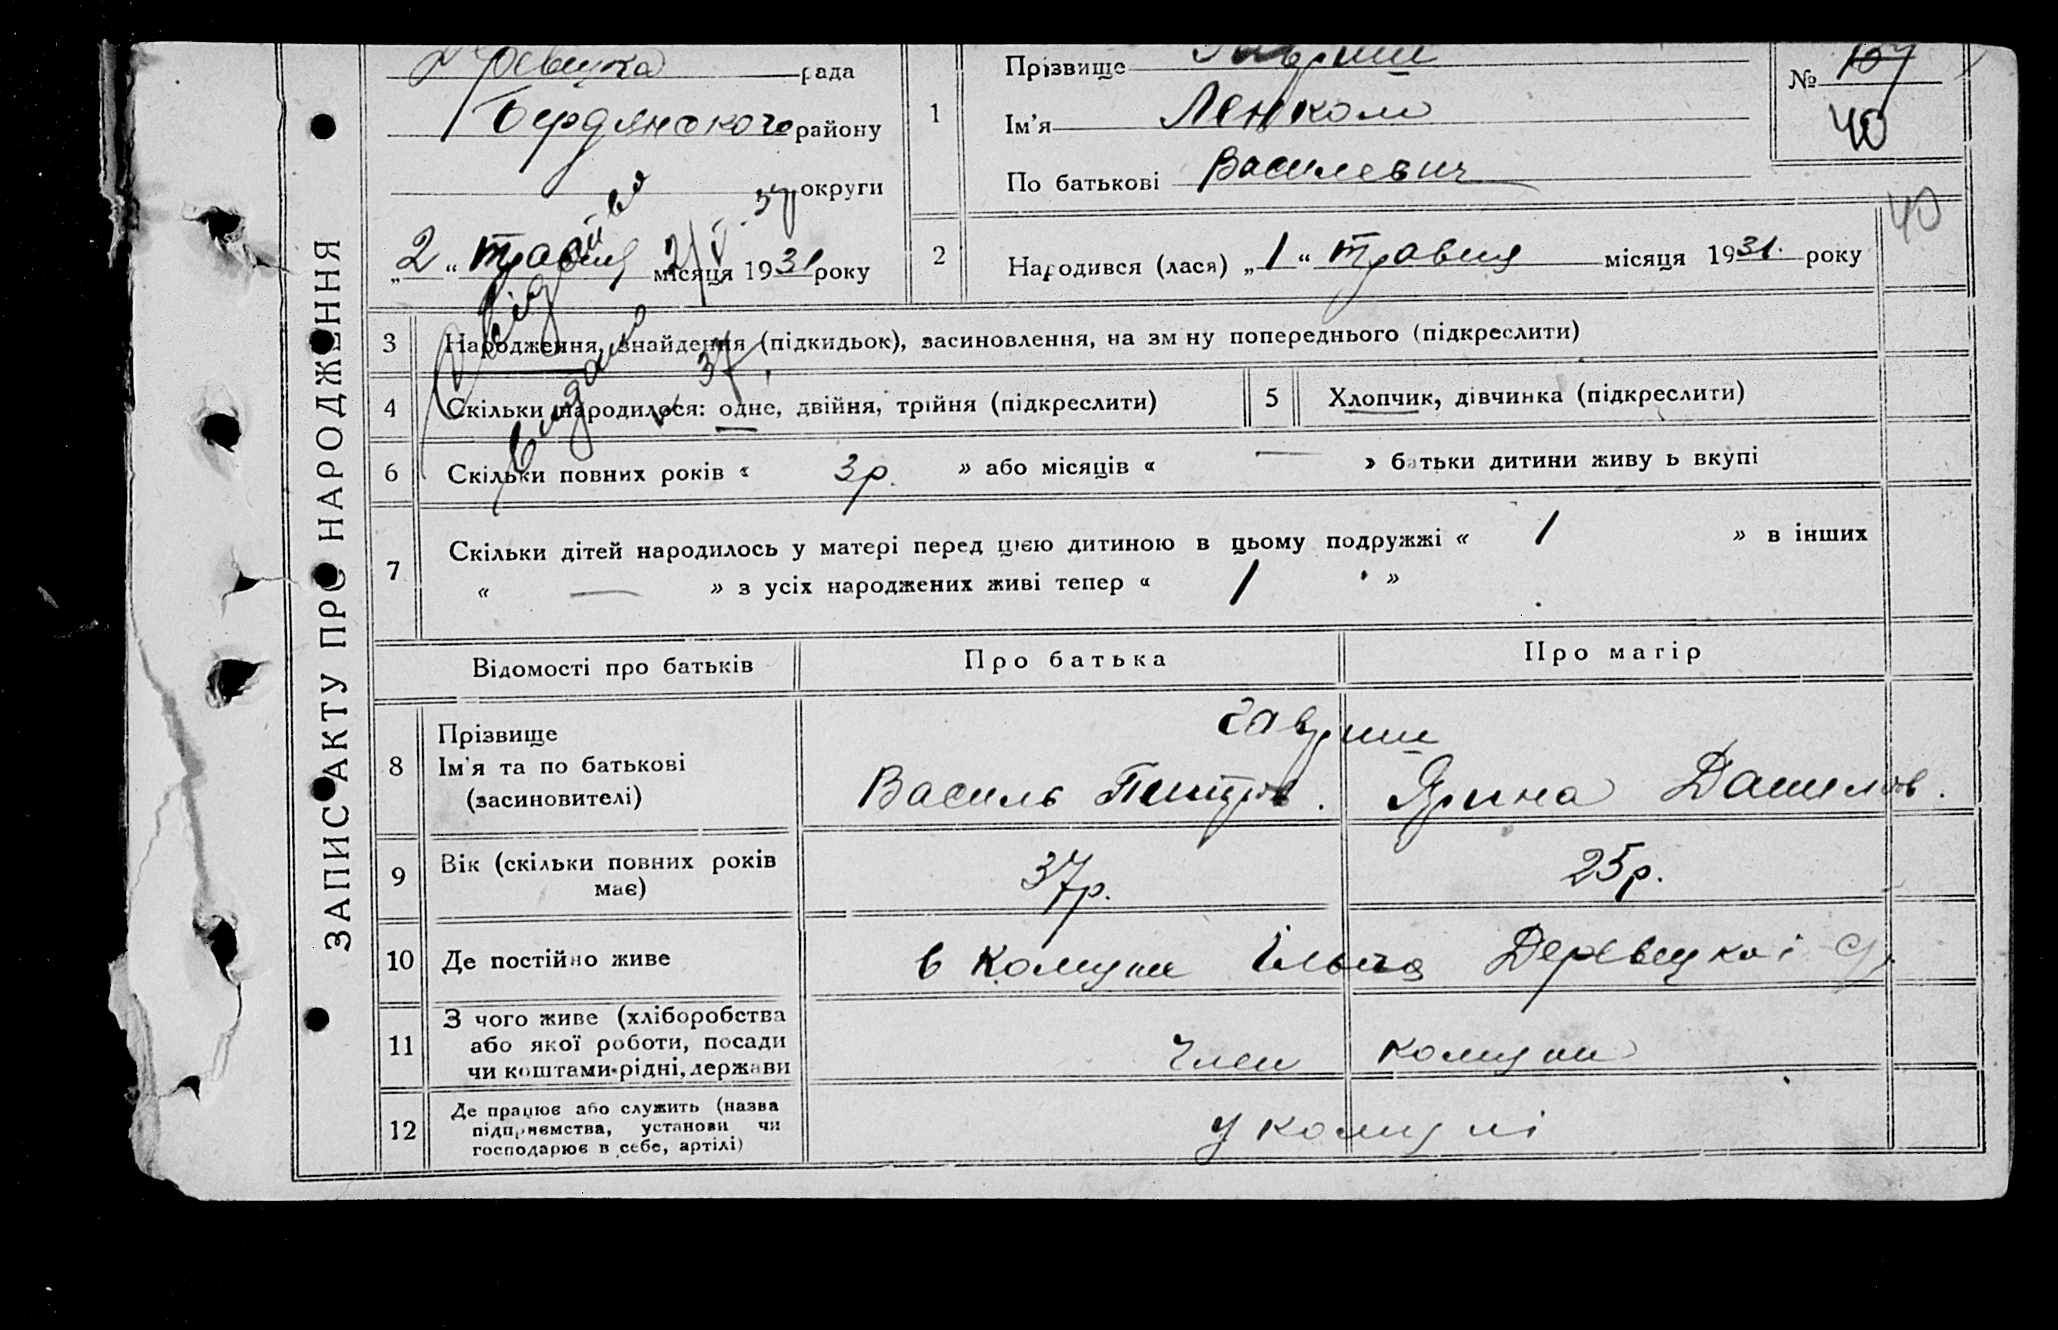 рада
Прізвище Гавриш
№ 107
Бердянского району
1
Ім'я Ленком
40
округи
По батькові Василевич
40
„2“ травня місяця 1931 року
2
Народився (лася) „1“ травня місяця 1931. року
Свідоцтв
видано
37
ЗАПИС АКТУ ПРО НАРОДЖЕННЯ
3 Народження, знайдення (підкидьок), засиновлення, на зм ну попереднього (підкреслити)
4 Скільки народилося: одне, двійня, трійня (підкреслити)
5 Хлопчик, дівчинка (підкреслити)
6 Скільки повних років « 3 р. » або місяців « — » батьки дитини живу ь вкупі
7 Скільки дітей народилось у матері перед цією дитиною в цьому подружжі « 1 » в інших
« — » з усіх народжених живі тепер « 1 »
Відомості про батьків
Про батька
Про матір
8 Прізвище
Ім'я та по батькові
(засиновителі)
Гавриш
Василь Петров. Ярина Данилов.
9 Вік (скільки повних років
має)
37 р.
25 р.
10 Де постійно живе
в Комуни Ільича Деревецкої
11 З чого живе (хліборобства
або якої роботи, посади
чи коштами рідні, держави
Член комуни
12 Де працює або служить (назва
підприємства, установи чи
господарює в себе, артілі)
у комуні